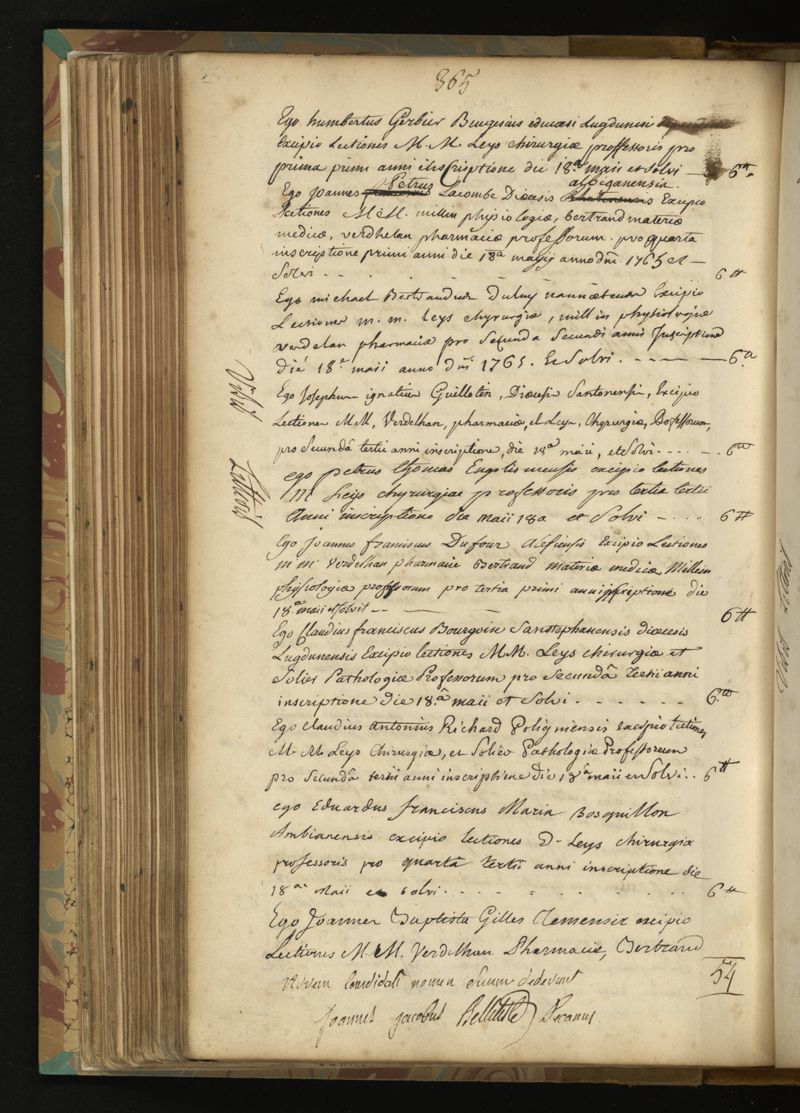 365
Ego humbertus Gerbier Beugesius diœcesi Lugdunensi
Excipio Lectiones M. M. Leys chirurgiæ proffessoris pro
prima primi anni inscriptione die 18ª maii et Solvi — 6tt
Petrus albiganensis
Ego Joannes Lacombe Diœcesis Excipio
Lectiones M M. millin physiologiæ, bertrand materiæ
medicæ, verdhelan pharmaciæ professorum. pro quarta
inscriptione primi anni die 18ª maij anno dni. 1765 et —
Solvi - - - 6tt
Ego michael Bertrandus Dulny nannœtensis Excipio
Lectiones m. m. Leys chyrurgiæ, millin physiologiæ
verdelan pharmaciæ pro Secunda Secundi anni Inscriptione
die 18ª maii anno dni 1765. Et Solvi. - - - - 6tt
Ego Josephus ignatius Guillotin, Diœcesis Santonensis, Excipio
Lectiones MM, Verdelhan, pharmaciæ, et Leys, Chyrurgiæ, Professorum,
pro Secundâ tertii anni inscriptione, die 18ª maii, et Solvi - - - 6tt
ego petrus thomas Engolismensis excipio lectiones
M. Leys chyrurgiae professoris pro tertia tertii
Anni inscriptione die maii 18a et Solvi - - - 6tt
Ego Joannes franciscus Dufour Excipio Lectiones
m m. Verdelhan pharmaciæ Bertrand materiæ medicæ Millin
physiologiæ professorum pro tertia primi anni inscriptione die
18ª maii et Solvit - - - 6tt
Ego Claudius franciscus Bourgoin Sanstephanensis diœcesis
Lugdunensis Excipio lectiones MM. Leys chirurgiæ et
Solier Pathologiæ Professorum pro Secundâ Tertii anni
inscriptione die 18ª maii et Solvi - - - 6tt
Ego claudius antonius Richard Poligniensis excipio Lectiones
M. M. Leys Chirurgiæ, et Solier Pathologiæ Professorum
pro Secundâ tertii anni inscriptione die 18ª maii et Solvi . . 6tt
ego Eduardus franciscus Maria Bosquillon
Ambianensis excipio lectiones D. Leys chirurgiæ
professoris pro quarta tertii anni inscriptione die
18ª Maii et solvi - - - 6tt
Ego Joannes Baptista Gilles excipio
Lectiones M. M. Verdelhan Pharmaciæ, Bertrand
54
novem Candidati nomen suum dederunt
Joannes Jacobus Belleteste Decanus